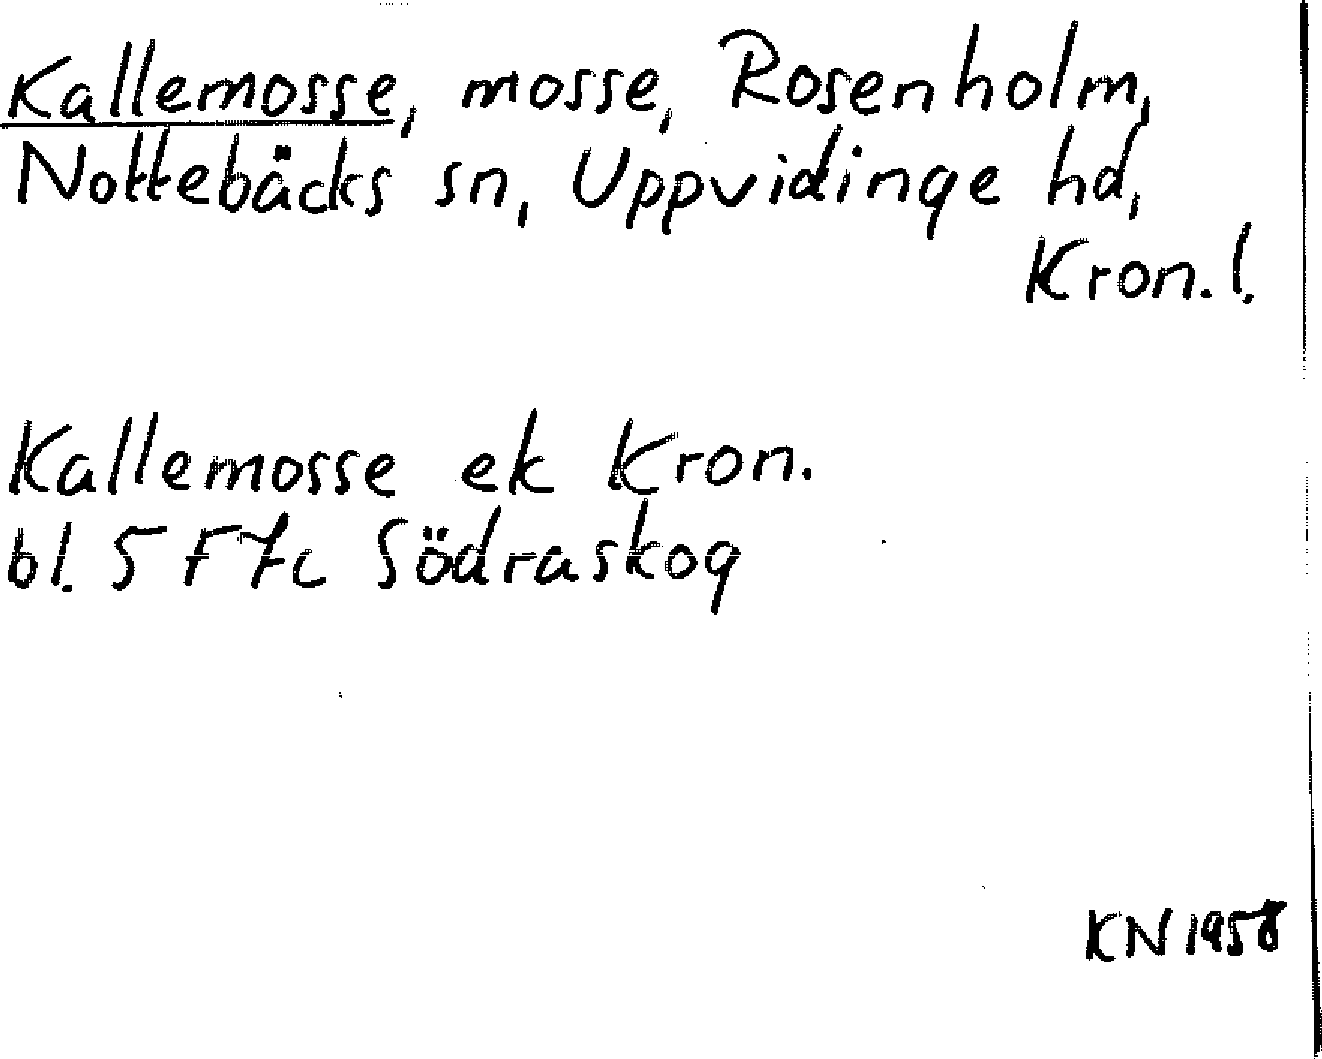 Kallemosse, mosse, Rosenholm,
Nottebäcks sn, Uppvidinge hd,
Kron.l.
Kallemosse ek Kron.
bl. 5 F 7c Södraskog
KN 1958